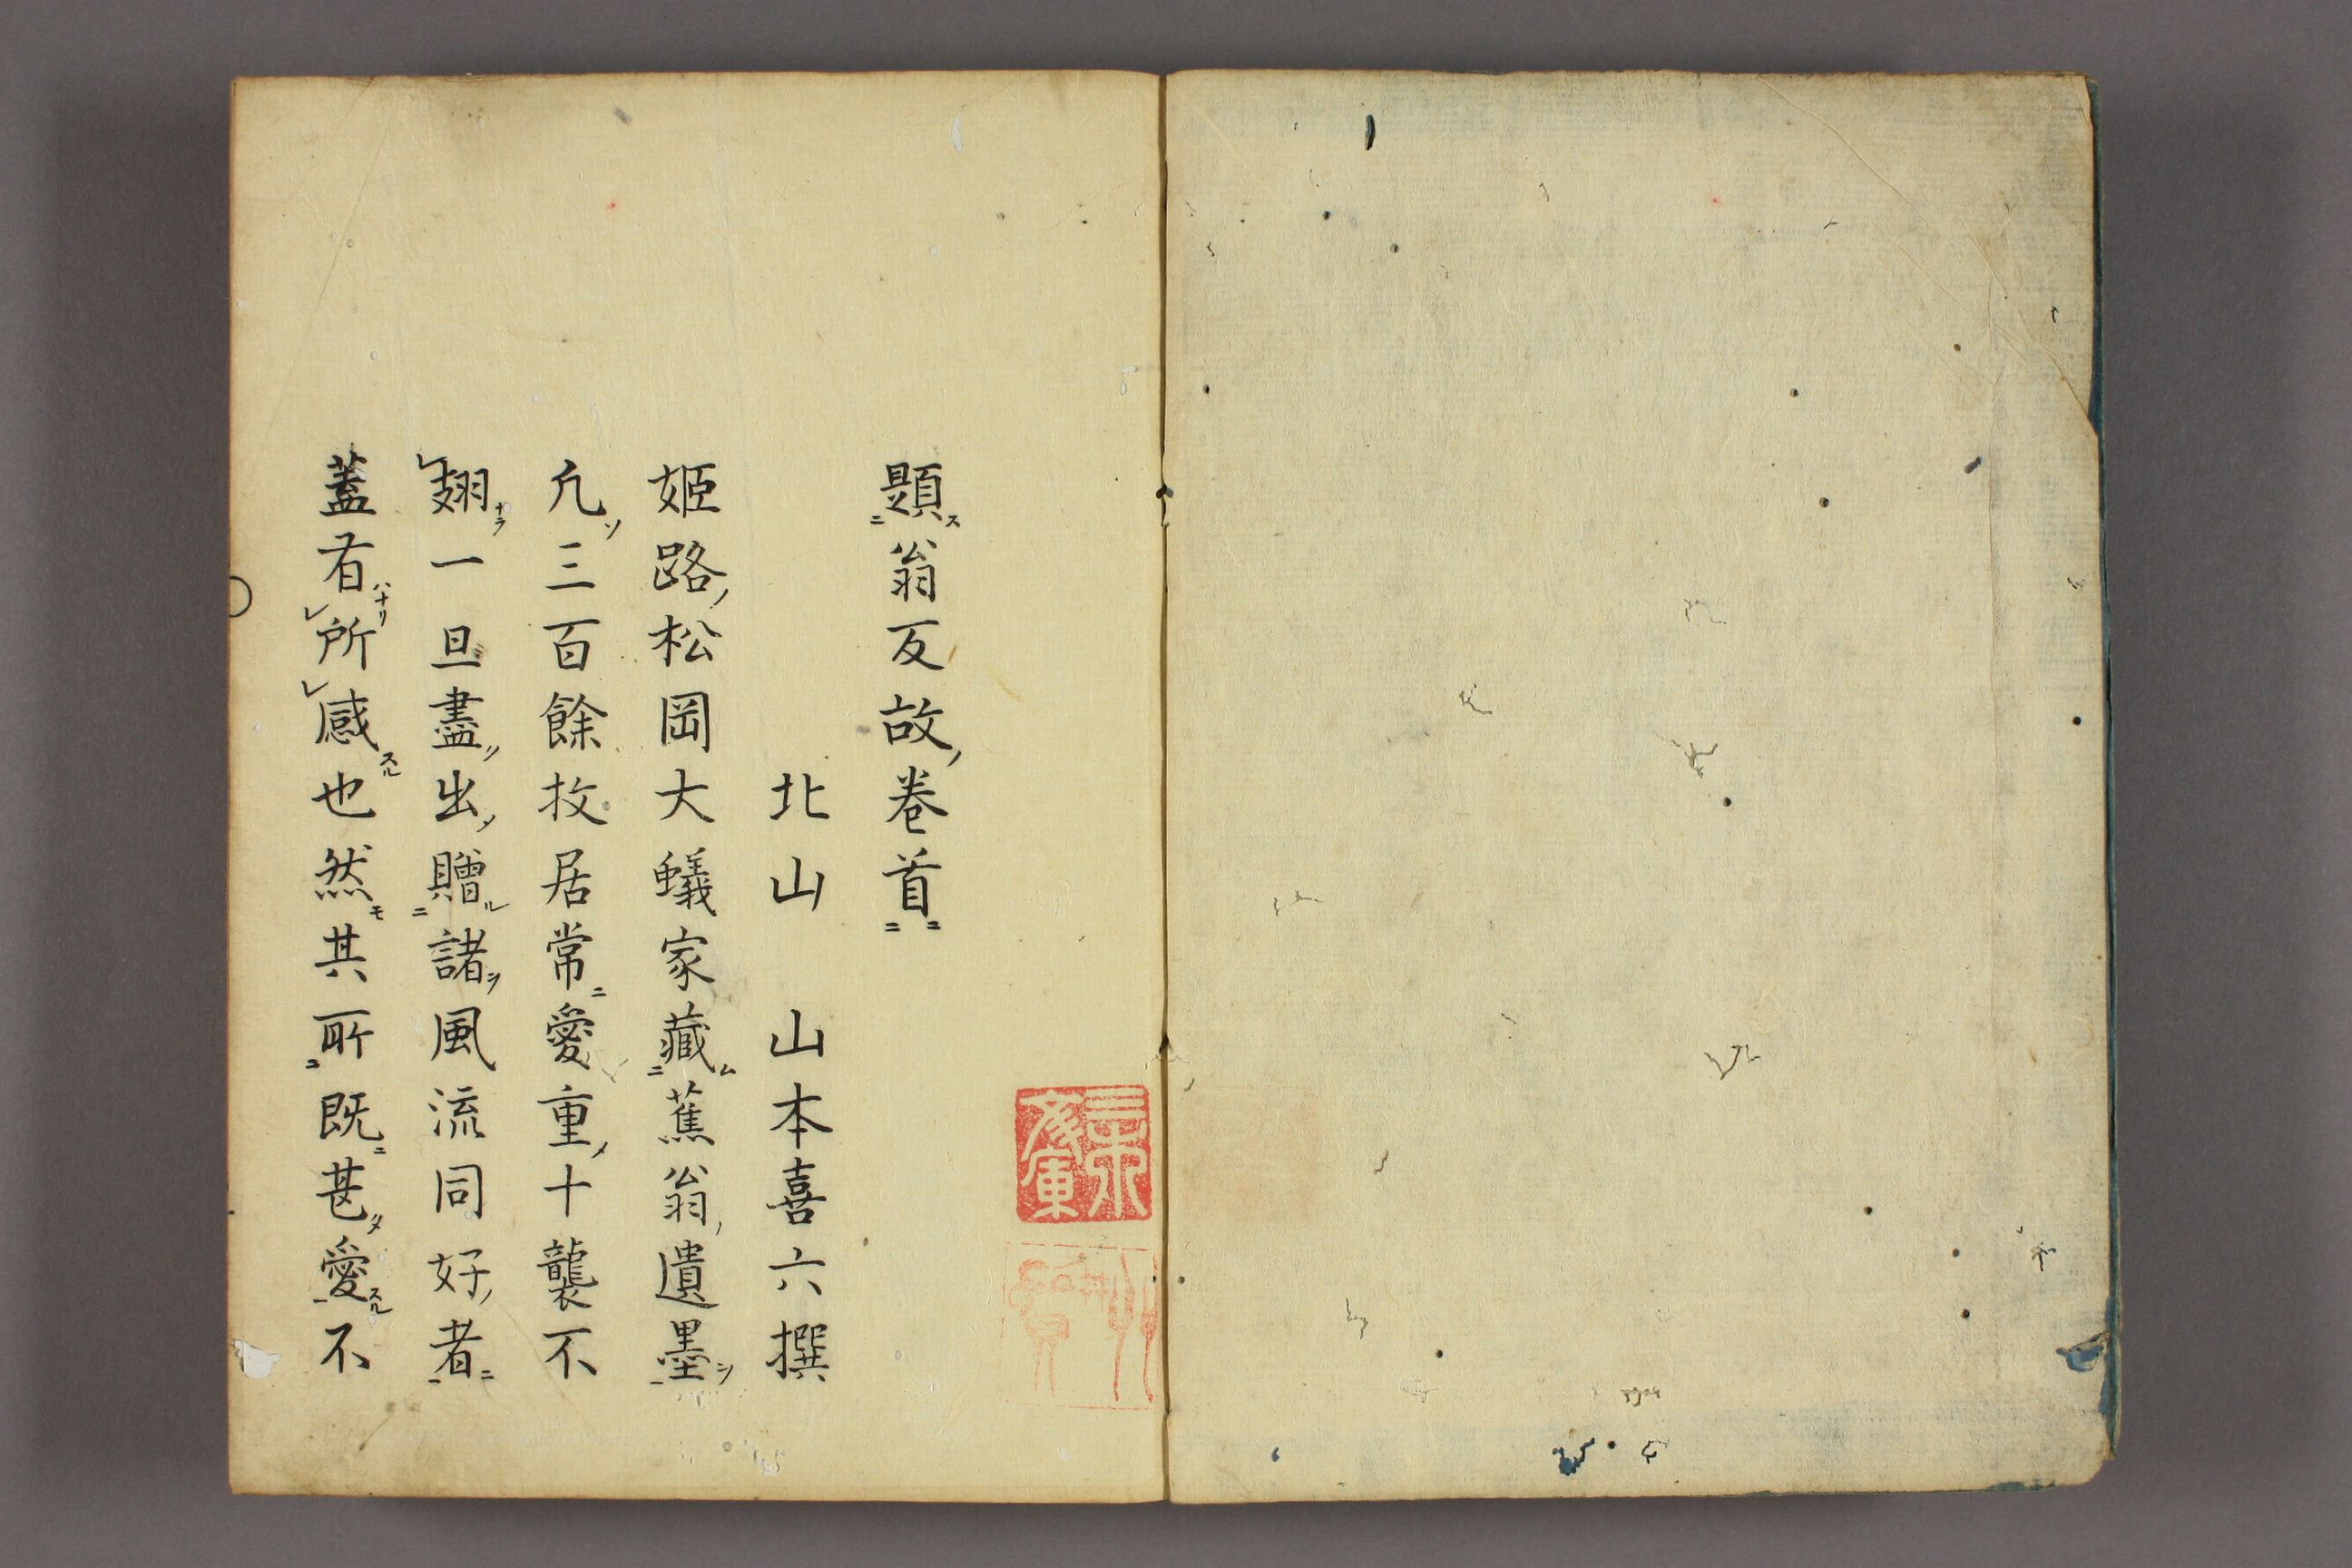 題翁反故卷首
北山　山本喜六撰
姬路松岡大蟻家藏蕉翁遺墨
凢三百餘枚居常愛重十襲不
翅一旦盡出贈諸風流同好者
蓋有所感也然其所既甚愛不